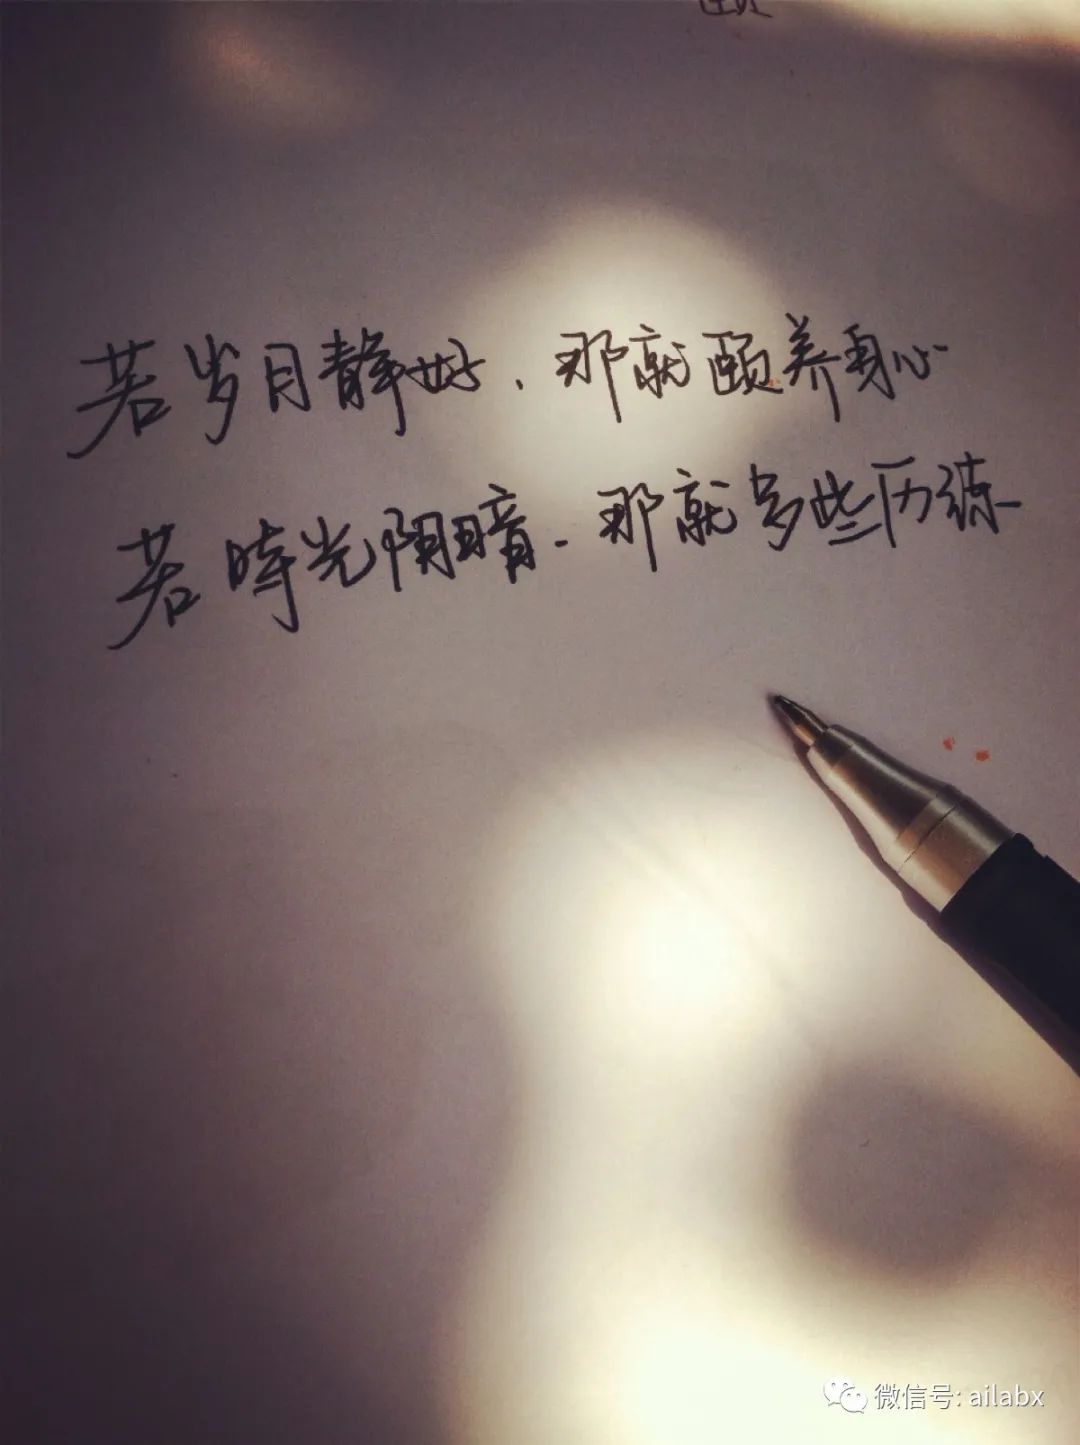 若岁月静好，那就颐养身心
若時光阴暗．那就多些历练
微信号: ailabx